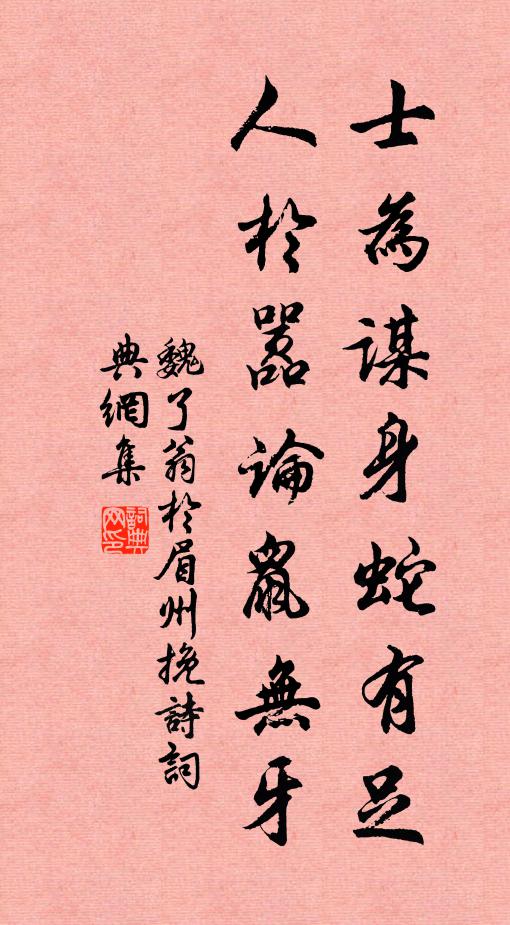 士為謀身蛇有足
人於囂論鼠無牙
魏了翁於眉州挽詩詞
典網集
詞典網印